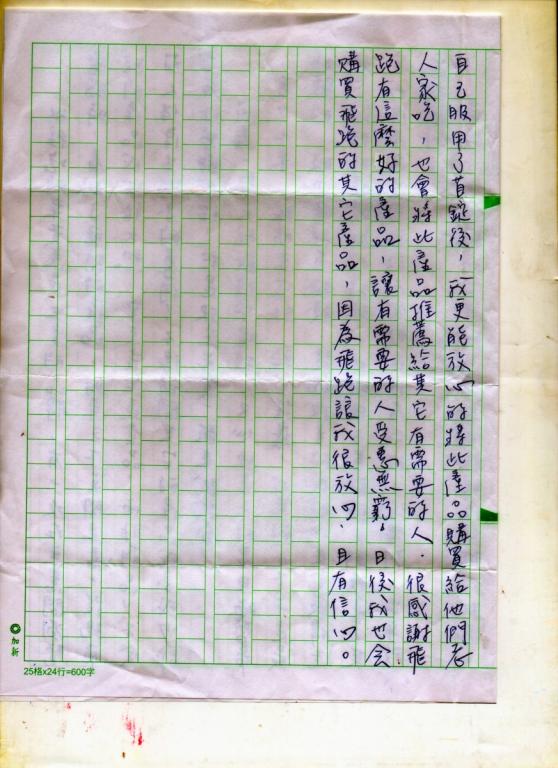 自己服用了首錠後，我更能放心的將此產品購買給他們老
人家吃，也會將此產品推薦給其它有需要的人．很感謝飛
跑有這麼好的產品，讓有需要的人受惠無窮，日後我也会
購買飛跑的其它產品，因為飛跑讓我很放心．且有信心。
加新
25格x24行=600字